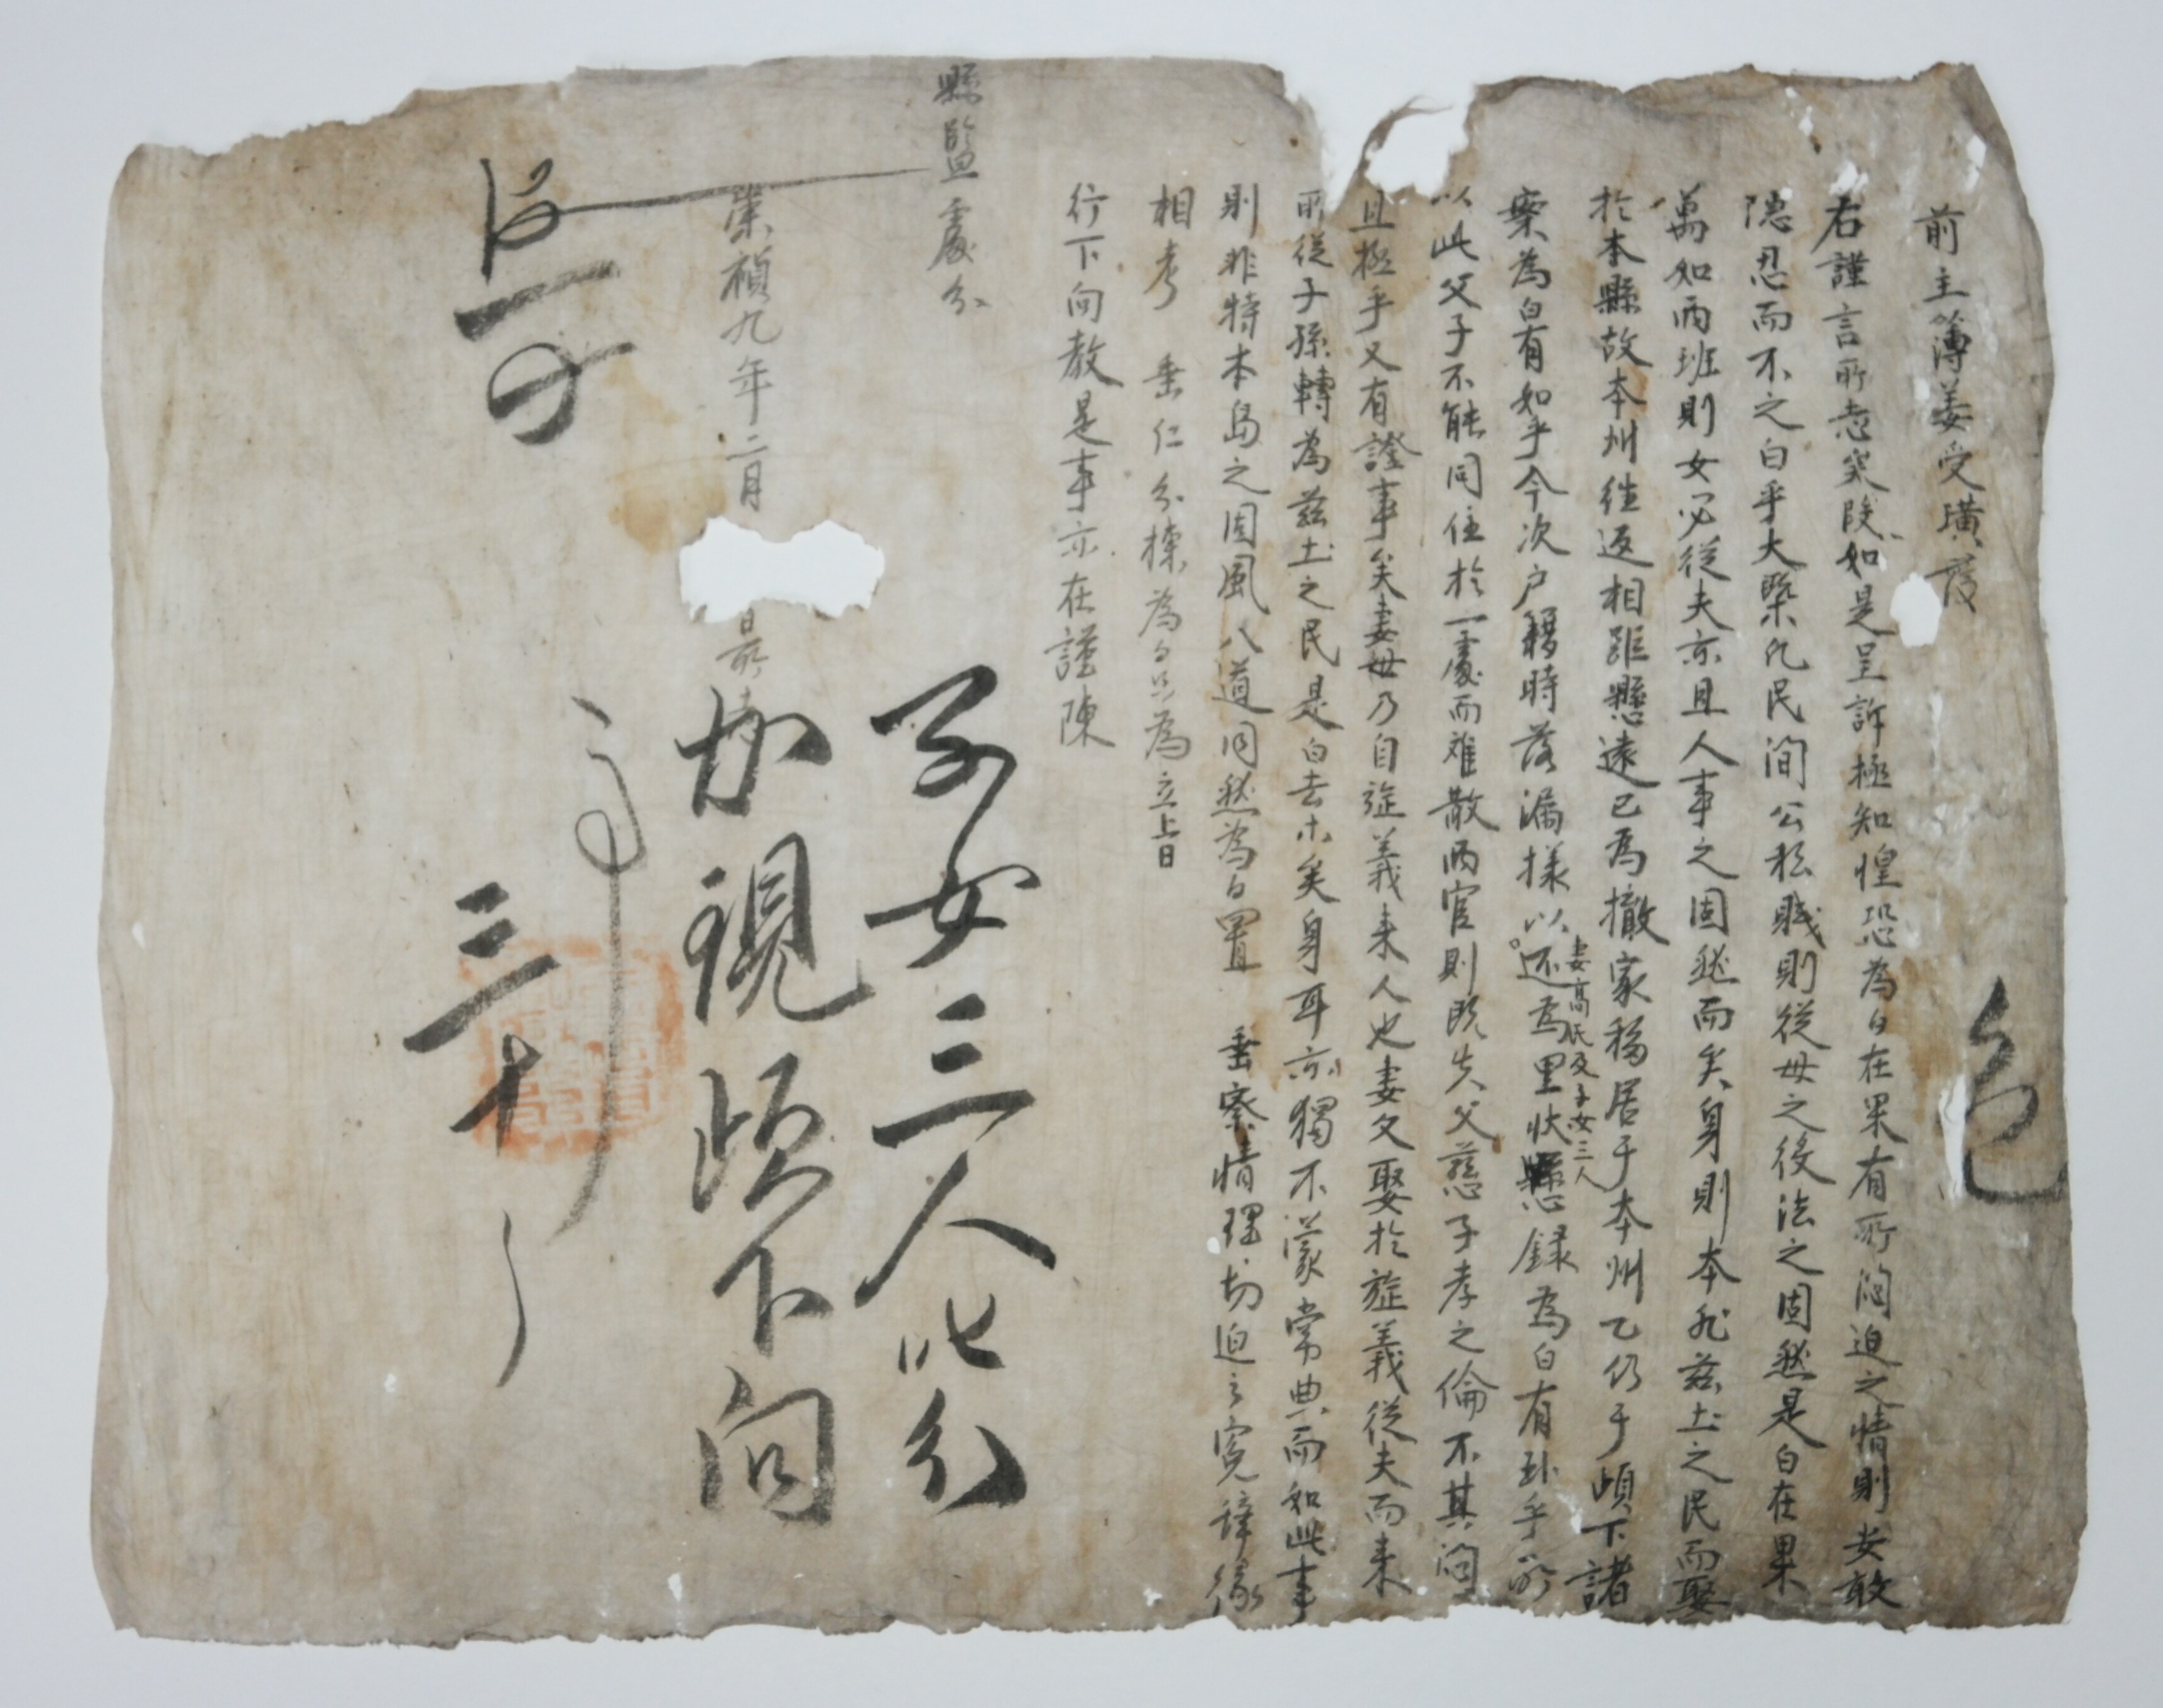 前主簿姜受璜
右謹言所志矣段如是呈訴極知惶恐爲白在果有所悶迫之情則安敢
隱忍而不之白乎大槩凡民間公私賤則從母之役法之固然是白在果
萬如兩班則女必從夫亦且人事之固然而矣身則本非玆土之民而娶
於本縣故本州往返相距懸遠已爲撤家移居于本州乙仍于頉下諸
案爲白有如乎今次戶籍時落漏樣以還爲里狀懸錄爲白有臥乎所
妻高氏及子女三人
以此父子不能同住於一處而難散兩官則旣失父慈子孝之倫不其悶
且極乎又有證事矣妻母乃自旌義來人也妻父娶於旌義從夫而來
所從子孫轉爲玆土之民是白去等矣身耳亦獨不蒙常典而如此事
則非特本島之固風八道同然爲白置 垂察情理切迫之寃辭緣
相考 垂仁分揀爲白只爲立上日
行下向敎是事亦在謹陳
縣監處分
崇禎九年二月 日所志
子女三人此分
戶視頉下向
三十
色